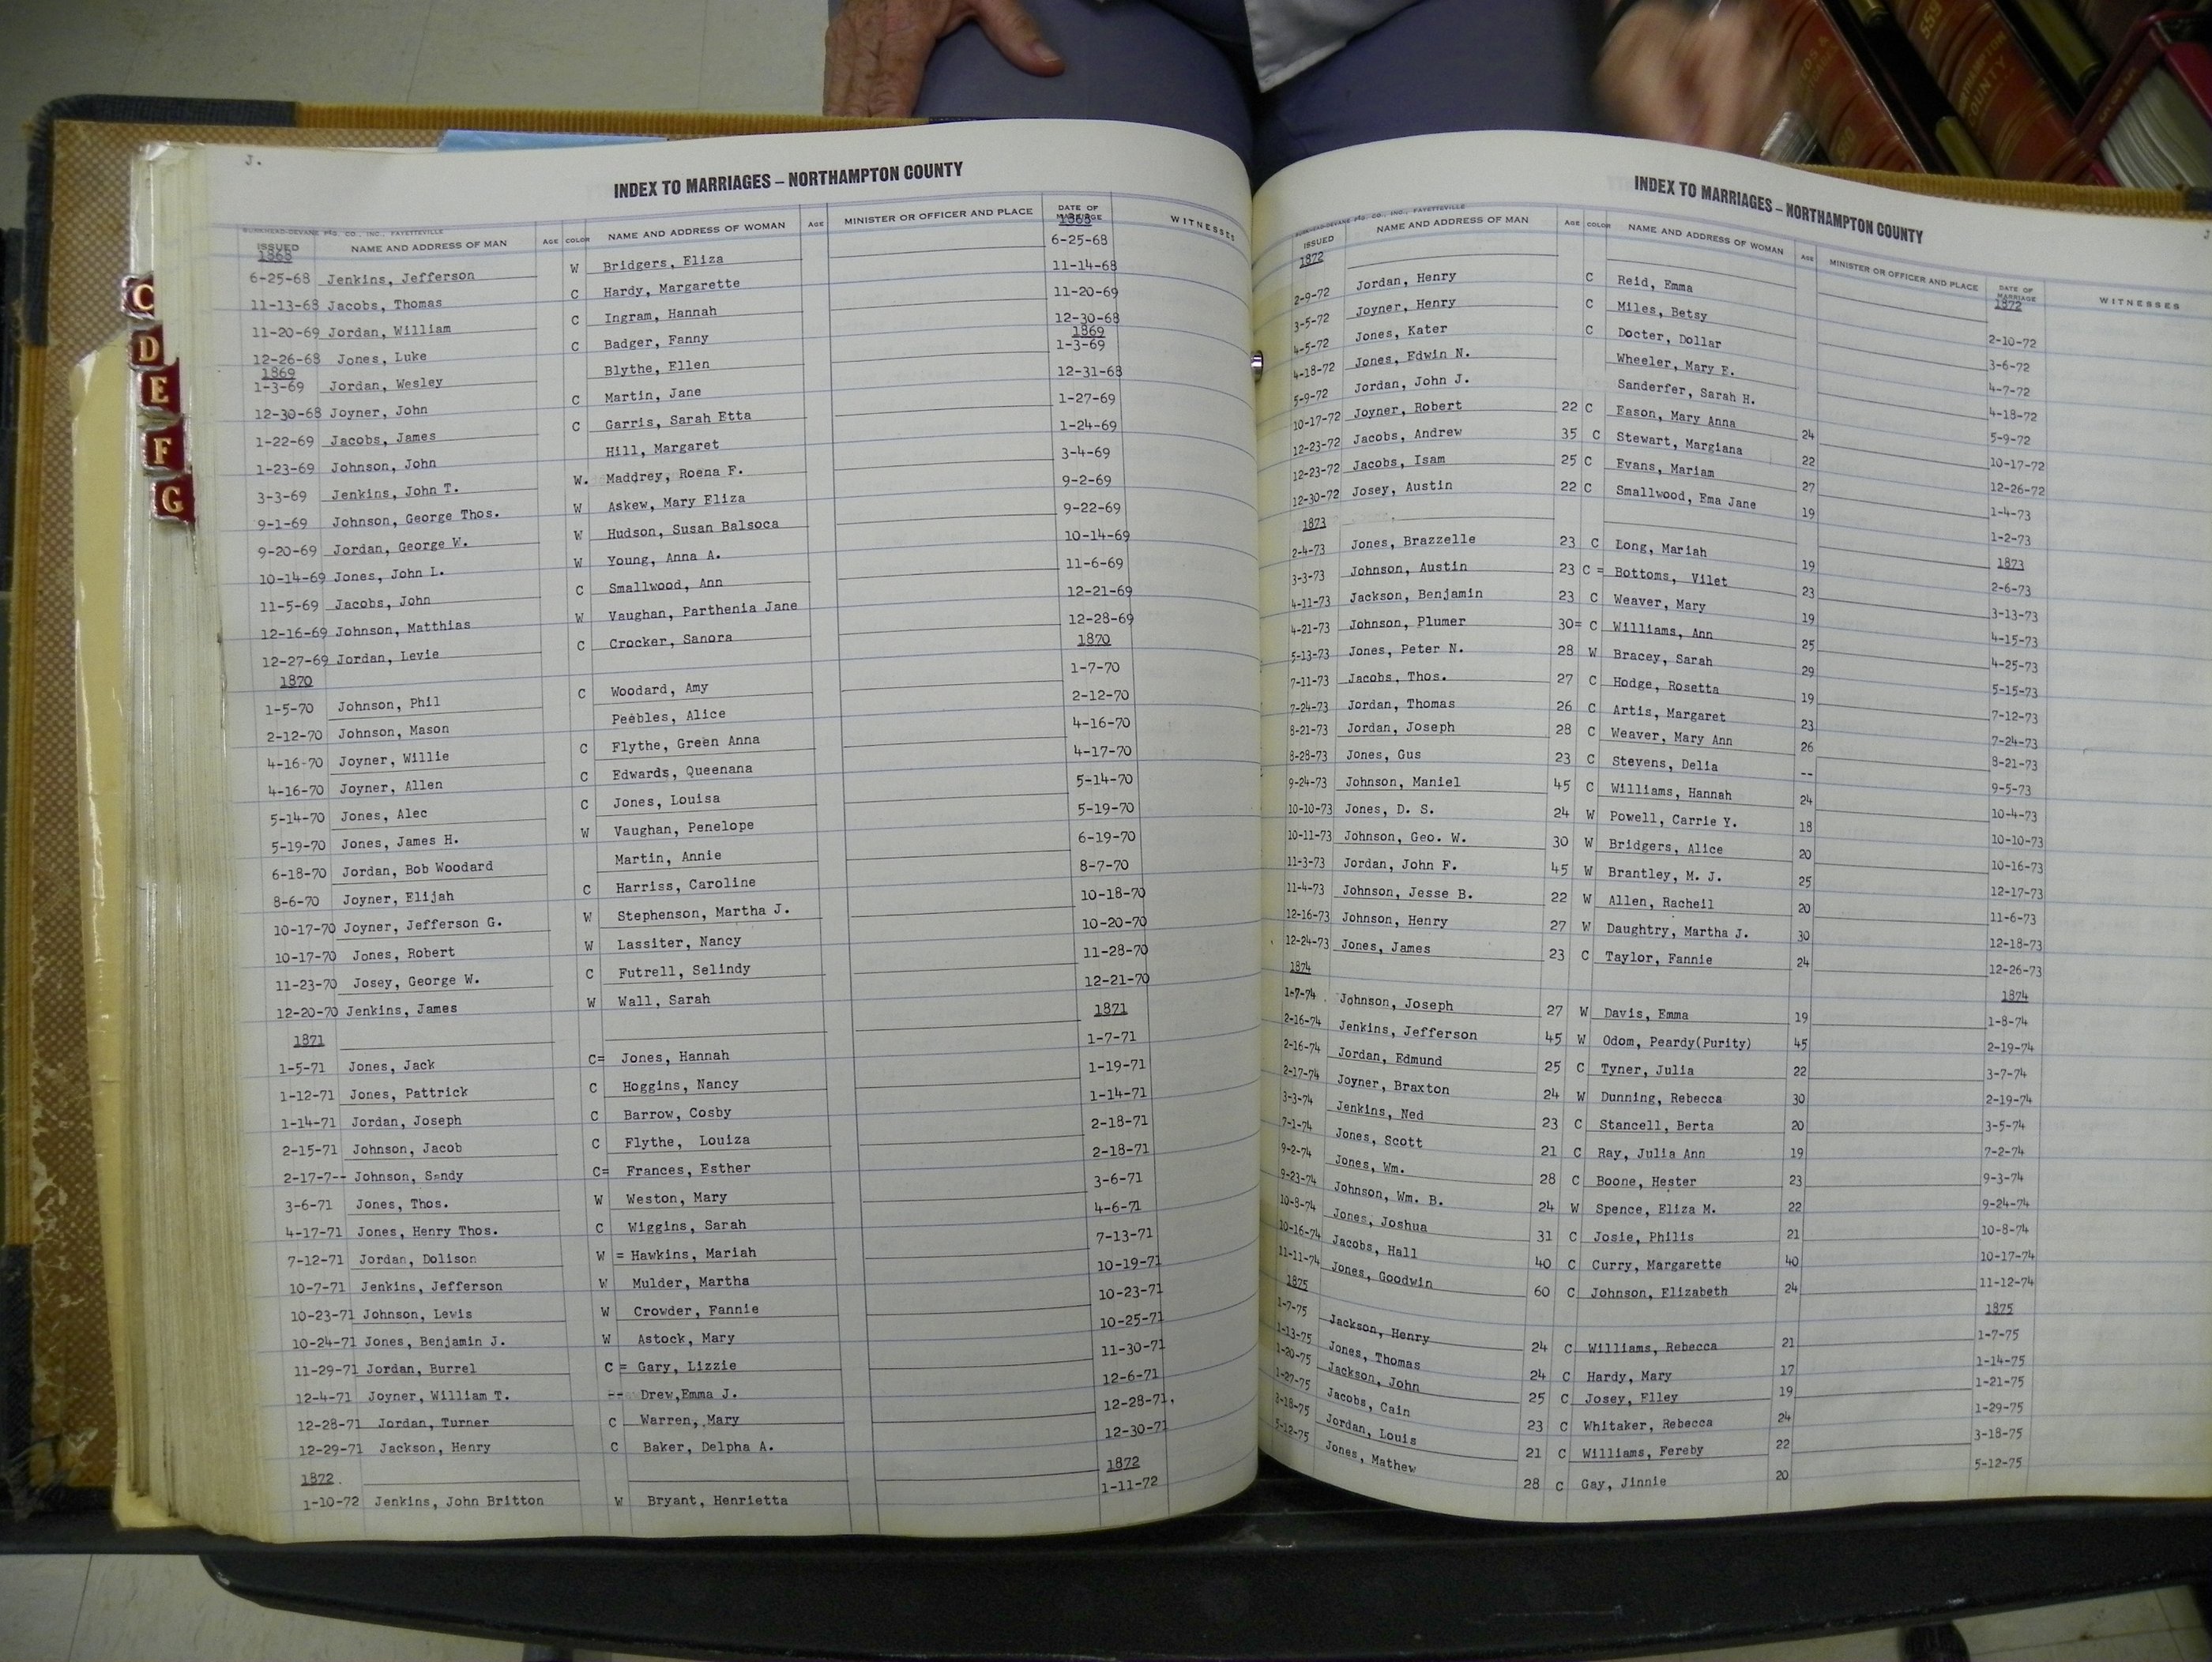 J.
INDEX TO MARRIAGES – NORTHAMPTON COUNTY
BURKHEAD-DEVANE PTG. CO., INC., FAYETTEVILLE
ISSUED NAME AND ADDRESS OF MAN AGE COLOR NAME AND ADDRESS OF WOMAN AGE MINISTER OR OFFICER AND PLACE DATE OF MARRIAGE WITNESSES
1868 1868
6-25-68 Jenkins, Jefferson W Bridgers, Eliza 6-25-68
11-13-68 Jacobs, Thomas C Hardy, Margarette 11-14-68
11-20-69 Jordan, William C Ingram, Hannah 11-20-69
12-26-68 Jones, Luke C Badger, Fanny 12-30-68
1869 1869
1-3-69 Jordan, Wesley Blythe, Ellen 1-3-69
12-30-68 Joyner, John C Martin, Jane 12-31-68
1-22-69 Jacobs, James C Garris, Sarah Etta 1-27-69
1-23-69 Johnson, John Hill, Margaret 1-24-69
3-3-69 Jenkins, John T. W. Maddrey, Roena F. 3-4-69
9-1-69 Johnson, George Thos. W Askew, Mary Eliza 9-2-69
9-20-69 Jordan, George W. W Hudson, Susan Balsoca 9-22-69
10-14-69 Jones, John L. W Young, Anna A. 10-14-69
11-5-69 Jacobs, John C Smallwood, Ann 11-6-69
12-16-69 Johnson, Matthias W Vaughan, Parthenia Jane 12-21-69
12-27-69 Jordan, Levie C Crocker, Sanora 12-28-69
1870 1870
1-5-70 Johnson, Phil C Woodard, Amy 1-7-70
2-12-70 Johnson, Mason Peebles, Alice 2-12-70
4-16-70 Joyner, Willie C Flythe, Green Anna 4-16-70
4-16-70 Joyner, Allen C Edwards, Queenana 4-17-70
5-14-70 Jones, Alec C Jones, Louisa 5-14-70
5-19-70 Jones, James H. W Vaughan, Penelope 5-19-70
6-18-70 Jordan, Bob Woodard Martin, Annie 6-19-70
8-6-70 Joyner, Elijah C Harriss, Caroline 8-7-70
10-17-70 Joyner, Jefferson G. W Stephenson, Martha J. 10-18-70
10-17-70 Jones, Robert W Lassiter, Nancy 10-20-70
11-23-70 Josey, George W. C Futrell, Selindy 11-28-70
12-20-70 Jenkins, James W Wall, Sarah 12-21-70
1871 1871
1-5-71 Jones, Jack C= Jones, Hannah 1-7-71
1-12-71 Jones, Pattrick C Hoggins, Nancy 1-19-71
1-14-71 Jordan, Joseph C Barrow, Cosby 1-14-71
2-15-71 Johnson, Jacob C Flythe, Louiza 2-18-71
2-17-7-- Johnson, Sandy C= Frances, Esther 2-18-71
3-6-71 Jones, Thos. W Weston, Mary 3-6-71
4-17-71 Jones, Henry Thos. C Wiggins, Sarah 4-6-71
7-12-71 Jordan, Dolison W = Hawkins, Mariah 7-13-71
10-7-71 Jenkins, Jefferson W Mulder, Martha 10-19-71
10-23-71 Johnson, Lewis W Crowder, Fannie 10-23-71
10-24-71 Jones, Benjamin J. W Astock, Mary 10-25-71
11-29-71 Jordan, Burrel C = Gary, Lizzie 11-30-71
12-4-71 Joyner, William T. -- Drew,Emma J. 12-6-71
12-28-71 Jordan, Turner C Warren, Mary 12-28-71
12-29-71 Jackson, Henry C Baker, Delpha A. 12-30-71
1872. 1872
1-10-72 Jenkins, John Britton W Bryant, Henrietta 1-11-72
INDEX TO MARRIAGES – NORTHAMPTON COUNTY
BURKHEAD-DEVANE PTG. CO., INC., FAYETTEVILLE
ISSUED NAME AND ADDRESS OF MAN AGE COLOR NAME AND ADDRESS OF WOMAN AGE MINISTER OR OFFICER AND PLACE DATE OF MARRIAGE WITNESSES
1872 1872
2-9-72 Jordan, Henry C Reid, Emma 2-10-72
3-5-72 Joyner, Henry C Miles, Betsy 3-6-72
4-5-72 Jones, Kater C Docter, Dollar 4-7-72
4-18-72 Jones, Edwin N. Wheeler, Mary E. 4-18-72
5-9-72 Jordan, John J. Sanderfer, Sarah H. 5-9-72
10-17-72 Joyner, Robert 22 C Eason, Mary Anna 24 10-17-72
12-23-72 Jacobs, Andrew 35 C Stewart, Margiana 22 12-26-72
12-23-72 Jacobs, Isam 25 C Evans, Mariam 27 1-4-73
12-30-72 Josey, Austin 22 C Smallwood, Ema Jane 19 1-2-73
1873 1873
2-4-73 Jones, Brazzelle 23 C Long, Mariah 19 2-6-73
3-3-73 Johnson, Austin 23 C = Bottoms, Vilet 23 3-13-73
4-11-73 Jackson, Benjamin 23 C Weaver, Mary 19 4-15-73
4-21-73 Johnson, Plumer 30= C Williams, Ann 25 4-25-73
5-13-73 Jones, Peter N. 28 W Bracey, Sarah 29 5-15-73
7-11-73 Jacobs, Thos. 27 C Hodge, Rosetta 19 7-12-73
7-24-73 Jordan, Thomas 26 C Artis, Margaret 23 7-24-73
8-21-73 Jordan, Joseph 28 C Weaver, Mary Ann 26 8-21-73
8-28-73 Jones, Gus 23 C Stevens, Delia -- 9-5-73
9-24-73 Johnson, Maniel 45 C Williams, Hannah 24 10-4-73
10-10-73 Jones, D. S. 24 W Powell, Carrie Y. 18 10-10-73
10-11-73 Johnson, Geo. W. 30 W Bridgers, Alice 20 10-16-73
11-3-73 Jordan, John F. 45 W Brantley, M. J. 25 12-17-73
11-4-73 Johnson, Jesse B. 22 W Allen, Racheil 20 11-6-73
12-16-73 Johnson, Henry 27 W Daughtry, Martha J. 30 12-18-73
12-24-73 Jones, James 23 C Taylor, Fannie 24 12-26-73
1874 1874
1-7-74 Johnson, Joseph 27 W Davis, Emma 19 1-8-74
2-16-74 Jenkins, Jefferson 45 W Odom, Peardy(Purity) 45 2-19-74
2-16-74 Jordan, Edmund 25 C Tyner, Julia 22 3-7-74
2-17-74 Joyner, Braxton 24 W Dunning, Rebecca 30 2-19-74
3-3-74 Jenkins, Ned 23 C Stancell, Berta 20 3-5-74
7-1-74 Jones, Scott 21 C Ray, Julia Ann 19 7-2-74
9-2-74 Jones, Wm. 28 C Boone, Hester 23 9-3-74
9-23-74 Johnson, Wm. B. 24 W Spence, Eliza M. 22 9-24-74
10-8-74 Jones, Joshua 31 C Josie, Philis 21 10-8-74
10-16-74 Jacobs, Hall 40 C Curry, Margarette 40 10-17-74
11-11-74 Jones, Goodwin 60 C Johnson, Elizabeth 24 11-12-74
1875 1875
1-7-75 Jackson, Henry 24 C Williams, Rebecca 21 1-7-75
1-13-75 Jones, Thomas 24 C Hardy, Mary 17 1-14-75
1-20-75 Jackson, John 25 C Josey, Elley 19 1-21-75
1-27-75 Jacobs, Cain 23 C Whitaker, Rebecca 24 1-29-75
3-18-75 Jordan, Louis 21 C Williams, Fereby 22 3-18-75
5-12-75 Jones, Mathew 28 C Gay, Jinnie 20 5-12-75
C
D
E
F
G
559
COUNTY